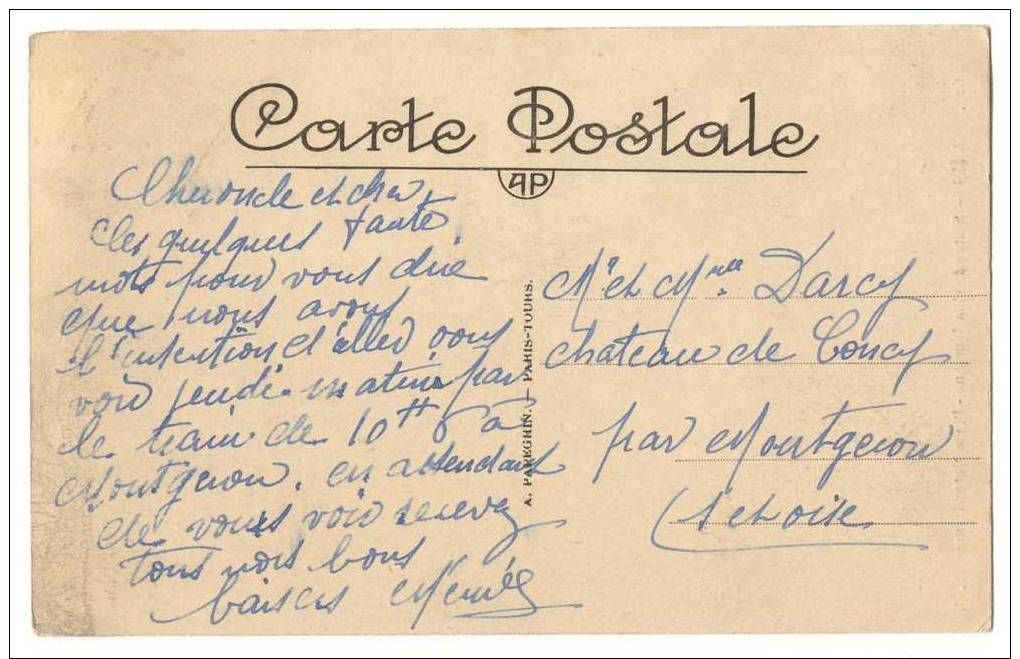 Carte Postale
AP
Cher oncle et cher
tante
Ces quelques
mots pour vous dire
que nous avons
l'intention d'aller vous
voir jeudi matin par
le train de 10H 6 à
Montgeron. en attendant
de vous voir recevez
tous nos bons
baisers
A. PAREGHIN. — PARIS-TOURS.
Mr et Mme Darcy
chateau de Concy
par Montgeron
S et oise